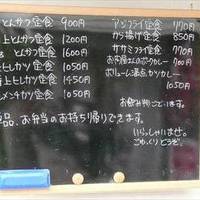 とんかつ定食 900円
上とんかつ定食 1200円
とんかつ定食 1600円
ヒレカツ定食 1050円
上ヒレカツ定食 1450円
メンチカツ定食 1050円
品、お弁当のお持ち帰りできます。
アジフライ定食 770円
から揚げ定食 850円
ササミフライ定食 770円
お肉屋さんのポークカレー 900円
ボリューム満点カツカレー
1050円
お飲み物ございます。
いらっしゃいませ。
ごゆっくりどうぞ。